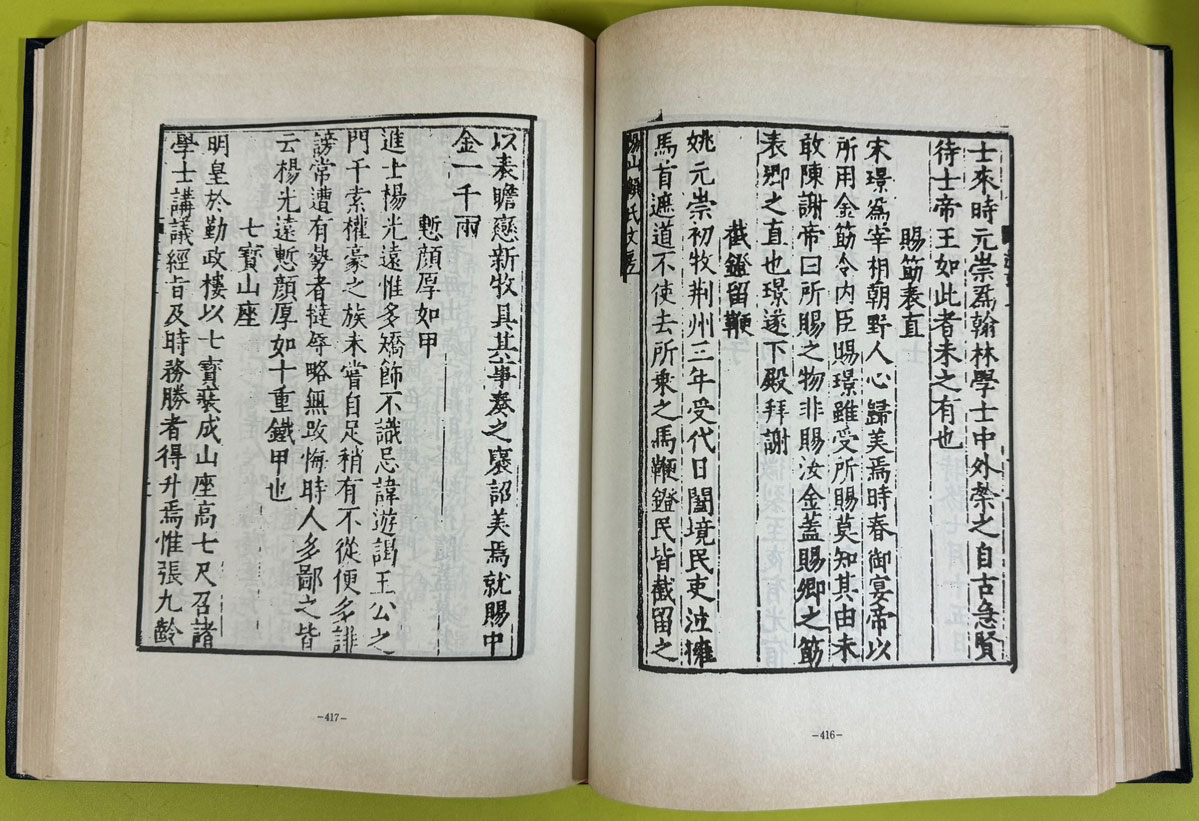 士來時元崇爲翰林學士中外榮之自古急賢
待士帝王如此者未之有也
賜筯表直
宋璟爲宰相朝野人心歸美焉時春御宴帝以
所用金筯令内臣賜璟雖受所賜莫知其由未
敢陳謝帝曰所賜之物非賜汝金蓋賜卿之筯
表卿之直也璟遂下殿拜謝
截鐙留鞭
姚元崇初牧荆州三年受代日闔境民吏泣擁
馬首遮道不使去所乘之馬鞭鐙民皆截留之
陽山顧氏文房
-416-
以表瞻戀新牧具其事奏之褒詔美焉就賜中
金一千兩
慙顔厚如甲
進士楊光遠惟多矯飾不識忌諱遊謁王公之
門干索權豪之族未嘗自足稍有不從便多誹
謗常遭有勢者撻辱略無改悔時人多鄙之皆
云楊光遠慙顔厚如十重鐵甲也
七寳山座
明皇於勤政樓以七寳裝成山座高七尺召諸
學士講議經旨及時務勝者得升焉惟張九齡
-417-